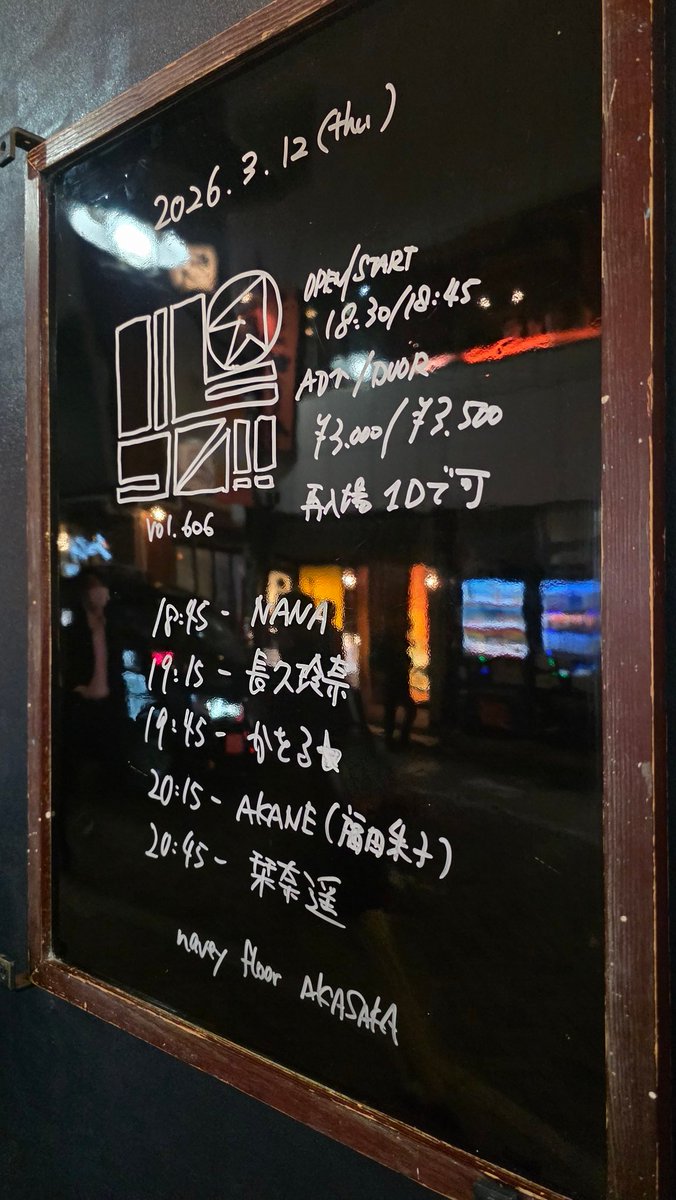 2026.3.12(thu)
OPEN/START
18:30/18:45
ADV/DOOR
¥3.000/¥3.500
再入場 1Dで可
vol.606
18:45 - NANA
19:15 - 長久玲奈
19:45 - かをる★
20:15 - AKANE(福田朱子)
20:45 - 栞奈遥
navey floor AKASAKA